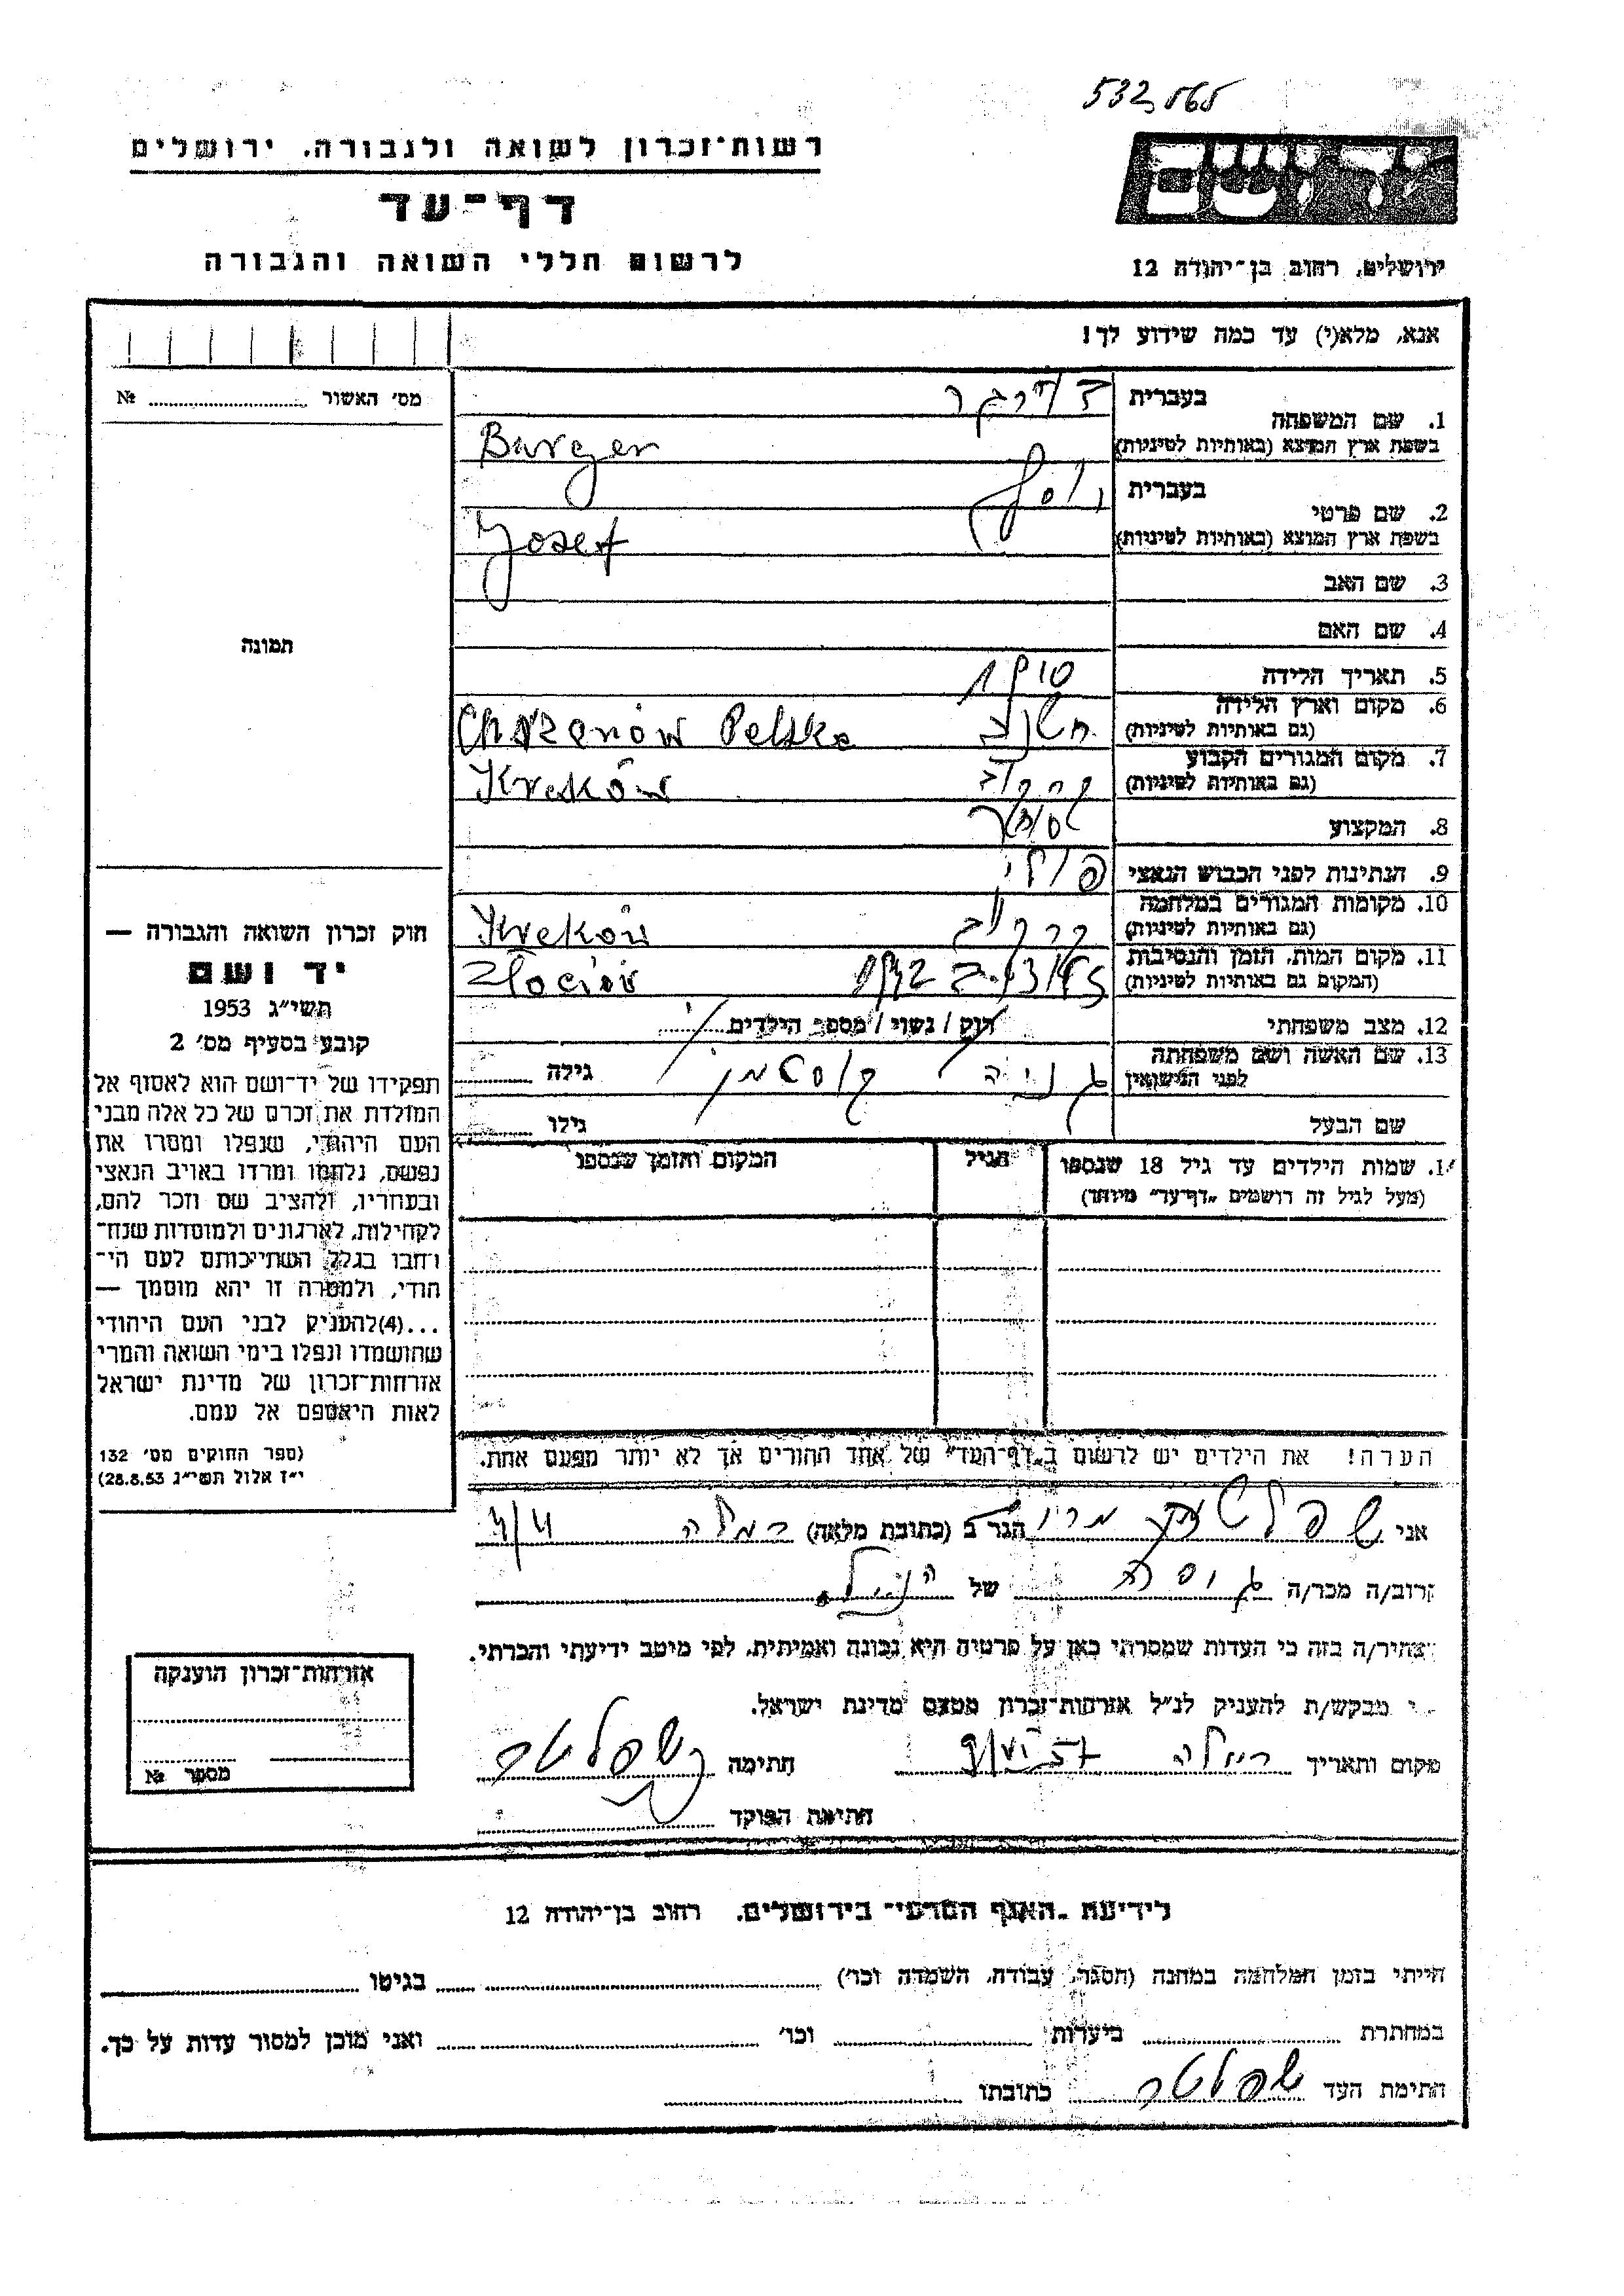 רשות־זכרון לשואה ולגבורה, ירושלים
דף־עד
לרשום חללי השואה והגבורה
יד ושם
ירושלים, רחוב בן־יהודה 12
אנא, מלא(י) עד כמה שידוע לך!
מס׳ האשור № 
1. שם המשפחה בעברית בורגר
בשפת ארץ המוצא (באותיות לטיניות) Burger
2. שם פרטי בעברית יוסף
בשפת ארץ המוצא (באותיות לטיניות) Josef
3. שם האב
4. שם האם
5. תאריך הלידה
6. מקום וארץ הלידה
(גם באותיות לטיניות) Chrzanów Polska
7. מקום המגורים הקבוע
(גם באותיות לטיניות) קרקוב Kraków
8. המקצוע סוחר
9. הנתינות לפני הכבוש הנאצי פולני
10. מקומות המגורים במלחמה
(גם באותיות לטיניות) קרקוב Kraków
11. מקום המות, הזמן והנסיבות
(המקום גם באותיות לטיניות) 1942 Złociów
12. מצב משפחתי רוק / נשוי / מספר הילדים
13. שם האשה ושם משפחתה
לפני הנישואין גילה
שם הבעל גילו
שמות הילדים עד גיל 18 שנספו הגיל המקום והזמן שנספו
(מעל לגיל זה רושמים "דף־עד" מיוחד)
הערה! את הילדים יש לרשום ב"דף־העד" של אחד ההורים אך לא יותר מפעם אחת.
אני הגר ב (כתובת מלאה) רמלה
קרוב/ה מכר/ה גיסה של הנ"ל.
מצהיר/ה בזה כי העדות שמסרתי כאן על פרטיה היא נכונה ואמיתית, לפי מיטב ידיעתי והכרתי.
מבקש/ת להעניק לנ"ל אזרחות־זכרון מטעם מדינת ישראל.
מקום ותאריך רמלה חתימה
חתימת הפוקד
תמונה
חוק זכרון השואה והגבורה —
יד ושם
תשי"ג 1953
קובע בסעיף מס׳ 2
תפקידו של יד־ושם הוא לאסוף אל
המולדת את זכרם של כל אלה מבני
העם היהודי, שנפלו ומסרו את
נפשם, נלחמו ומרדו באויב הנאצי
ובעוזריו, ולהציב שם וזכר להם,
לקהילות, לארגונים ולמוסדות שנח־
רחבו בגלל השתייכותם לעם הי־
הודי, ולמטרה זו יהא מוסמך —
...(4)להעניק לבני העם היהודי
שהושמדו ונפלו בימי השואה והמרי
אזרחות־זכרון של מדינת ישראל
לאות היאספם אל עמם.
(ספר החוקים מס׳ 132
י"ז אלול תשי"ג 28.8.53)
אזרחות־זכרון הוענקה
מספר №
לידיעת האגף המדעי בירושלים, רחוב בן־יהודה 12
הייתי בזמן המלחמה במחנה (הסגר, עבודה, השמדה וכו׳) בגיטו
במחתרת ביערות וכו׳ ואני מוכן למסור עדות על כך.
חתימת העד כתובתו